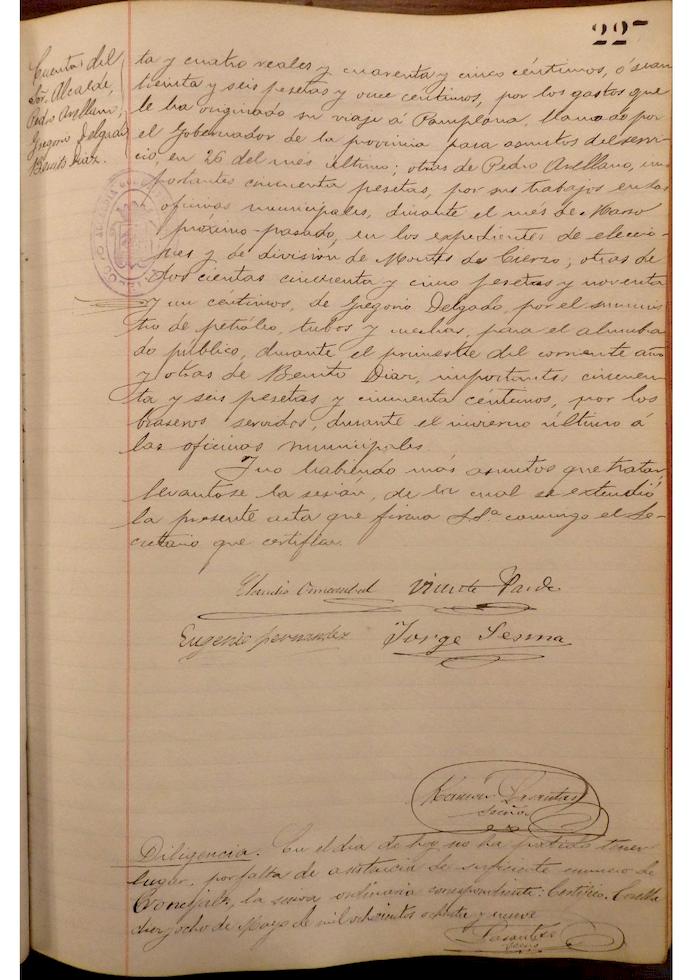 22
Cuentas del
Sor. Alcalde,
Pedro Arellano,
Gregorio Delgado,
Benito Diaz.
ta y cuatro reales y cuarenta y cinco céntimos, ó sean
treinta y seis pesetas y once centimos, por los gastos que
le ha originado su viaje á Pamplona, llamado por
el Gobernador de la provincia para asuntos del servi-
cio, en 26 del mes último; otras de Pedro Arellano, im-
portantes cincuenta pesetas, por sus trabajos en las
oficinas municipales, durante el més de Marzo
próximo-pasado, en los expedientes de eleccio-
nes y de división de Montes de Cierzo; otras de
dos cientas cincuenta y cinco pesetas y noventa
y un centimos, de Gregorio Delgado, por el suminis
tro de petróleo, tubos y mechas, para el alumbra
do público, durante el trimestre del corriente año
y otras de Benito Diaz, importantes cincuen-
ta y seis pesetas y cincuenta centimos, por los
braseros servidos, durante el invierno último á
las oficinas municipales.
Y no habiendo más asuntos que tratar,
levantóse la sesión, de la cual se extendió
la presente acta que firma S.Sª conmigo el Se-
cretario que certifica.
Claudio Vicente
Eugenio Fernandez Jorge Sesma
Ramón
Srio
Diligencia. En el dia de hoy no ha podido tener
lugar, por falta de asistencia de suficiente numero de
Concejales, la sesion ordinaria correspondiente: Certifico. Corella
diez y ocho de Mayo de mil ochocientos ochenta y nueve